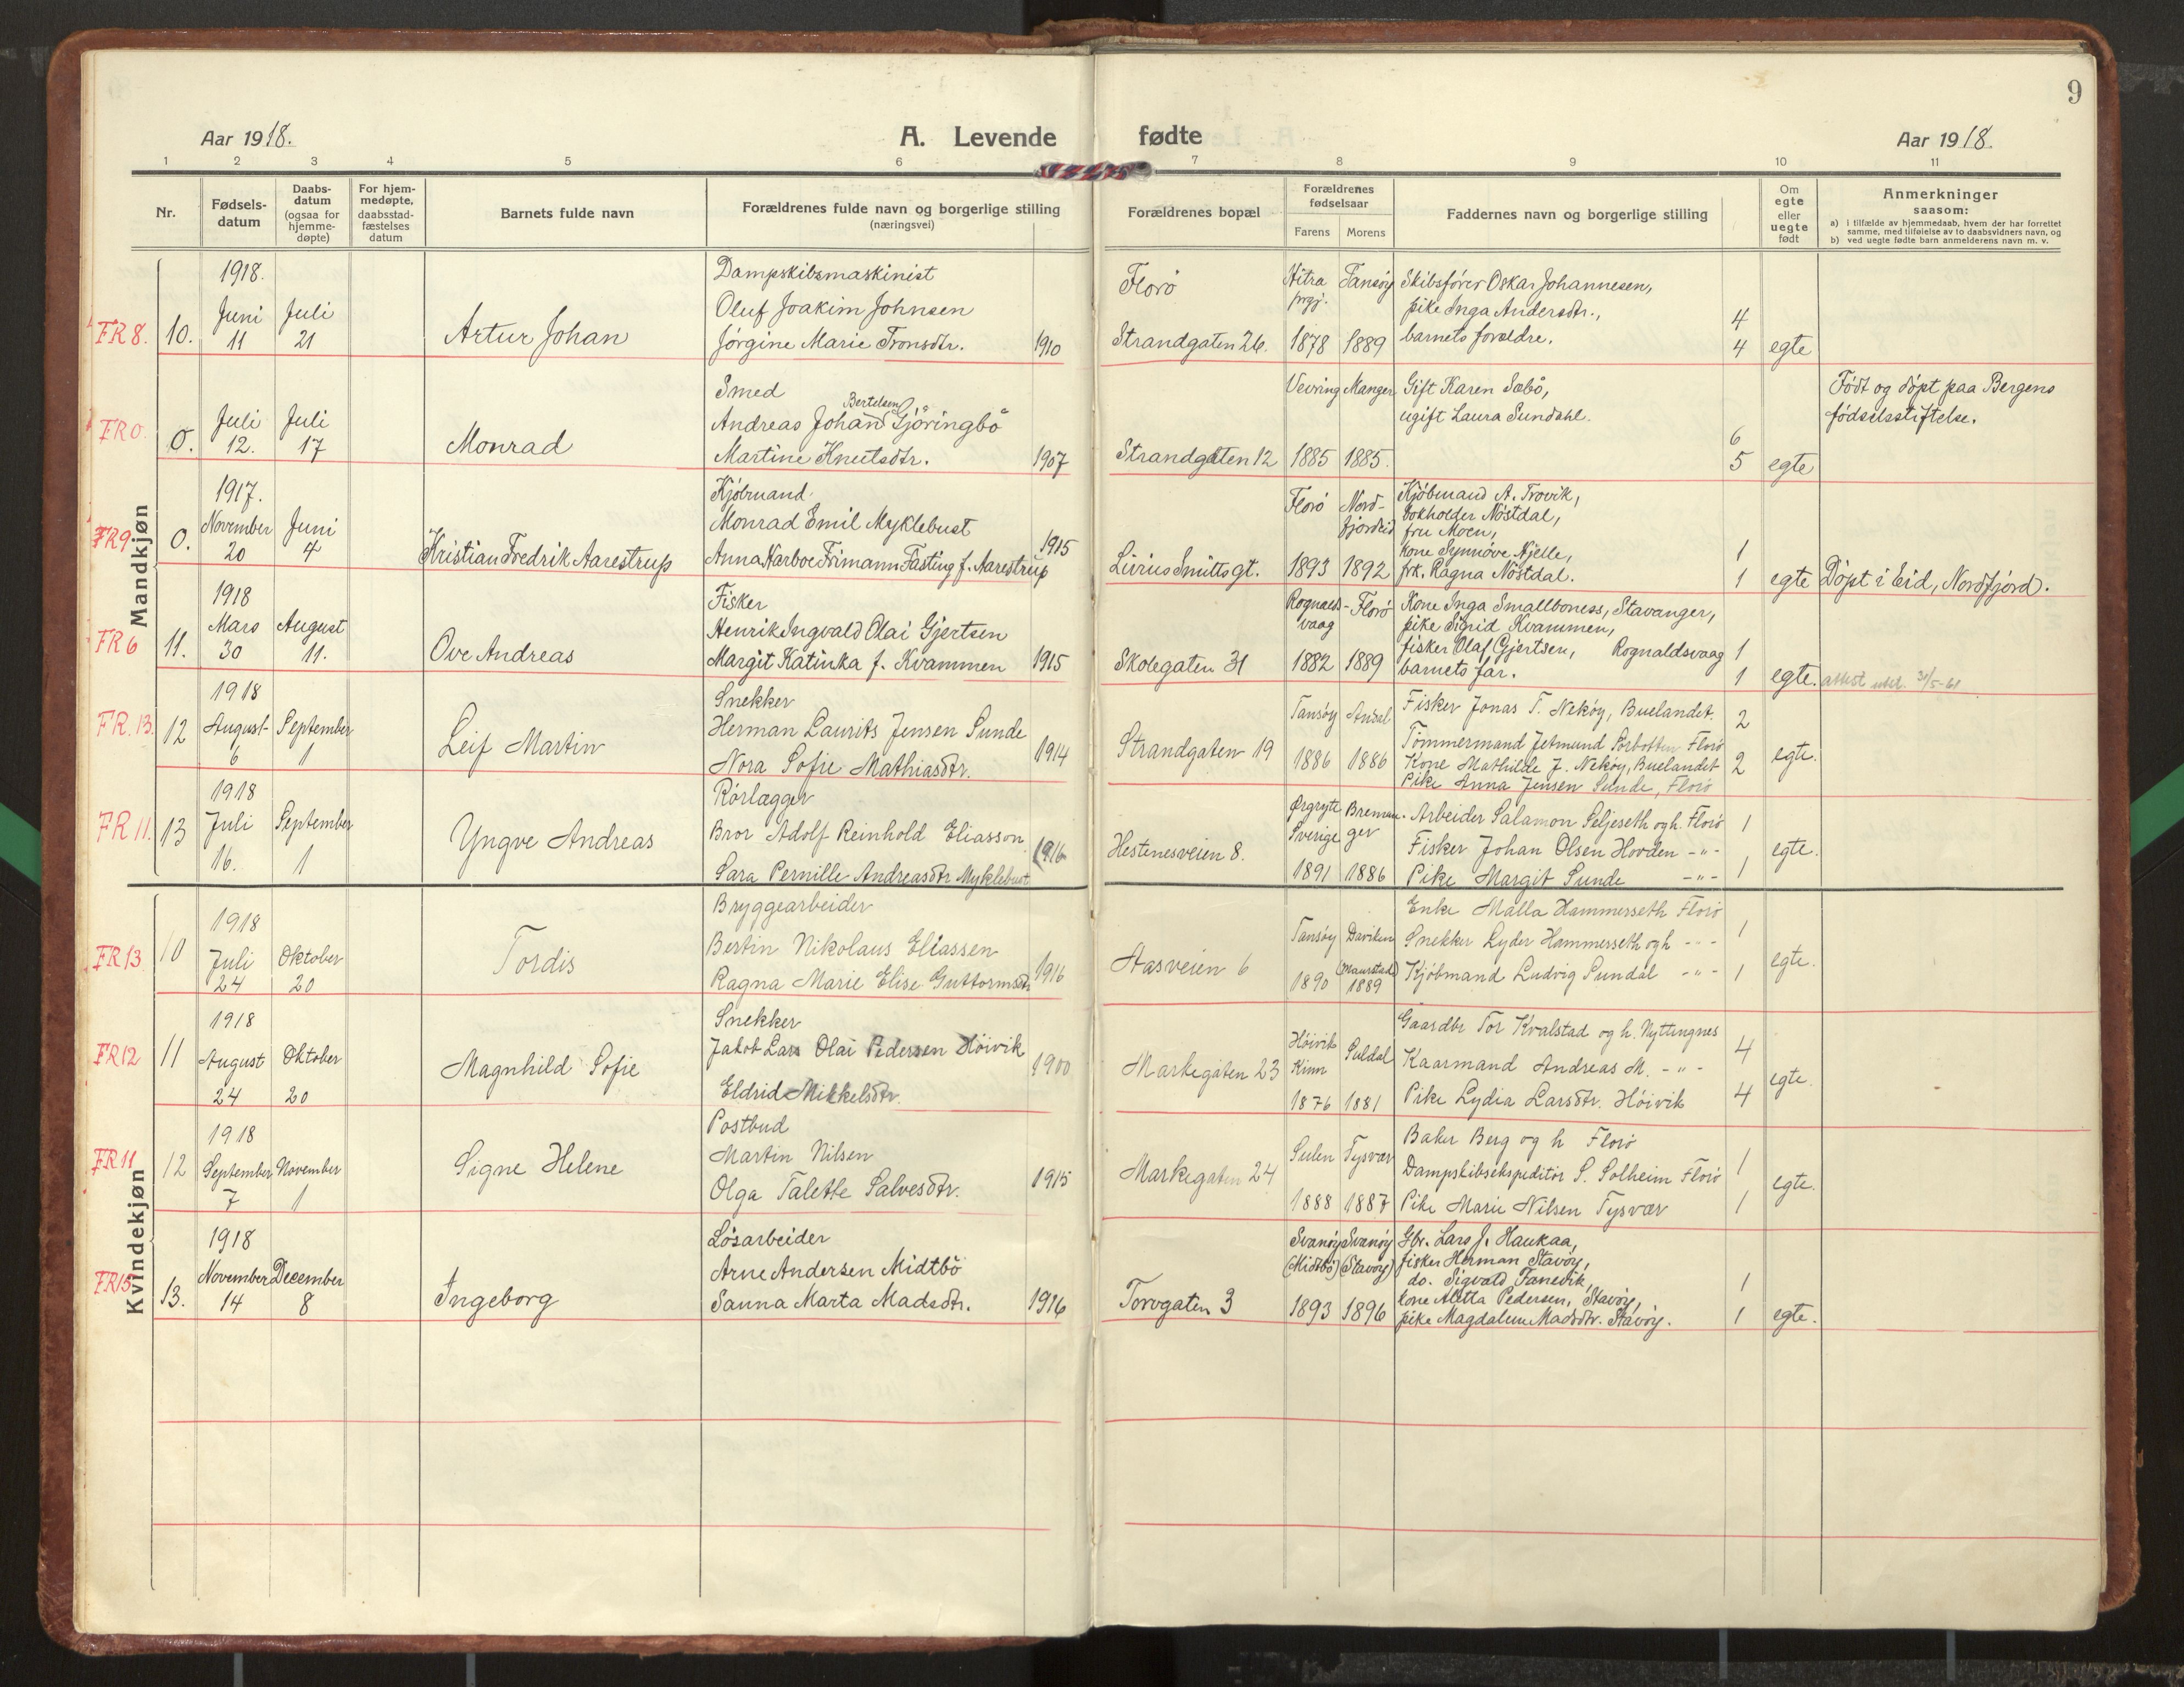 9
Aar 1918.
A. Levende fødte
Aar 1918.
1 2 3 4 5 6 7 8 9 10 11
Nr.
Fødsels-
datum
Daabs-
datum
(ogsaa for
hjemme-
døpte)
For hjem-
medøpte,
daabsstad-
fæstelses
datum
Barnets fulde navn
Forældrenes fulde navn og borgerlige stilling
(næringsvei)
Forældrenes bopæl
Forældrenes
fødselsaar
Farens Morens
Faddernes navn og borgerlige stilling
Om
egte
eller
uegte
født
Anmerkninger
saasom:
a) i tilfælde av hjemmedaab, hvem der har forrettet
samme, med tilføielse av to daabsvidners navn, og
b) ved uegte fødte barn anmelderens navn m. v.
Mandkjøn
FR 8. 10.
1918.
Juni
11
Juli
21
Artur Johan
Dampskibsmaskinist
Oluf Joakim Johnsen
Jørgine Marie Tronsdtr.
1910
Florö
Strandgaten 26.
Hitra
prgj.
1878
Tansøy
1889
Skibsfører Oskar Johannesen,
pike Inga Andersdtr.,
barnets forældre.
4
4
egte
FR 0. 0.
Juli
12.
Juli
17
Monrad
Smed
Bertelsen
Andreas Johan Gjöringbö
Martine Knutsdtr.
1907
Strandgaten 12
Vevring
1885
Manger
1885.
Gift Karen Sæbö,
ugift Laura Sundahl.
6
5
egte
Født og døpt paa Bergens
fødselsstiftelse.
FR9 0.
1917.
November
20
Juni
4
Kristian Fredrik Aarestrup
Kjöbmand
Monrad Emil Myklebust
Anna Narboe Frimann Fasting f. Aarestrup
1915
Livius Smitts gt.
Florö
1893
Nord-
fjordeid
1892
Kjöbmand A. Trovik,
bokholder Nöstdal,
fru Moen,
kone Synnöve Hjelle,
frk. Ragna Nöstdal.
1
1
egte
Döpt i Eid, Nordfjord.
FR 6 11.
1918
Mars
30
August
11.
Ove Andreas
Fisker
Henrik Ingvald Olai Gjertsen
Margit Katinka f. Kvammen
1915
Skolegaten 31
Rognalds-
vaag
1882
Florö
1889
Kone Inga Smallboness, Stavanger,
pike Sigrid Kvammen,
fisker Olaf Gjertsen, Rognaldsvaag
barnets far.
1
1
egte.
attest utst. 31/5-61
FR. 13. 12
1918
August
6
September
1
Leif Martin
Snekker
Herman Laurits Jensen Sunde
Nora Sofie Mathiasdtr.
1914
Strandgaten 19
Tansøy
1886
Andal
1886
Fisker Jonas T. Nekøy, Buelandet.
Tömmermand Jetmund Sorbotten Florö
Kone Mathilde J. Nekøy, Buelandet
Pike Anna Jensen Sunde, Florö
2
2
egte.
FR 11. 13
1918
Juli
16.
September
1
Yngve Andreas
Rörlægger
Bror Adolf Reinhold Eliasson
Sara Pernille Andreasdtr Myklebust
1916
Hestenesveien 8.
Ørgryte
Sverige
1891
Breman-
ger
1886
Arbeider Salamon Seljeseth og h. Florö
Fisker Johan Olsen Hovden -"-
Pike Margit Sunde -"-
1
1
egte.
Kvindekjøn
FR 13 10
1918
Juli
24
Oktober
20
Tordis
Bryggearbeider
Bertin Nikolaus Eliassen
Ragna Marie Elise Guttormsdtr
1916
Aasveien 6
Tansøy
1890
Daviken
(Maurstad)
1889
Enke Malla Hammerseth Florö
Snekker Lyder Hammerseth og h -"-
Kjöbmand Ludvig Sundal -"-
1
1
egte.
FR 12 11
1918
August
24
Oktober
20
Magnhild Sofie
Snekker
Jakob Lars Olai Pedersen Höivik
Eldrid Mikkelsdtr.
1900
Markegaten 23
Höivik
Kinn
1876
Suldal
1881
Gaardbr Tor Kvalstad og h. Nyttingnes
Kaarmand Andreas M. -"-
Pike Lydia Larsdtr. Höivik
4
4
egte.
FR 11 12
1918
September
7
November
1
Signe Helene
Postbud
Martin Nilsen
Olga Talette Salvesdtr.
1915
Markegaten 24
Sulen
1888
Tysvær
1887
Baker Berg og h Florö
Dampskibsekspeditör S. Solheim Florö
Pike Marie Nilsen Tysvær
1
1
egte.
FR15 13.
1918
November
14
December
8
Ingeborg
Løsarbeider
Arne Andersen Midtbö
Sanna Marta Madsdtr.
1916
Torvgaten 3
Svanøy
(Midtbö)
1893
Svanøy
(Stavøy)
1896
Gbr. Lars J. Haukaa,
fisker Herman Stavøy,
do. Sigvald Fanevik,
kone Aletta Pedersen, Stavøy,
pike Magdalene Madsdtr. Stavøy.
1
1
egte.